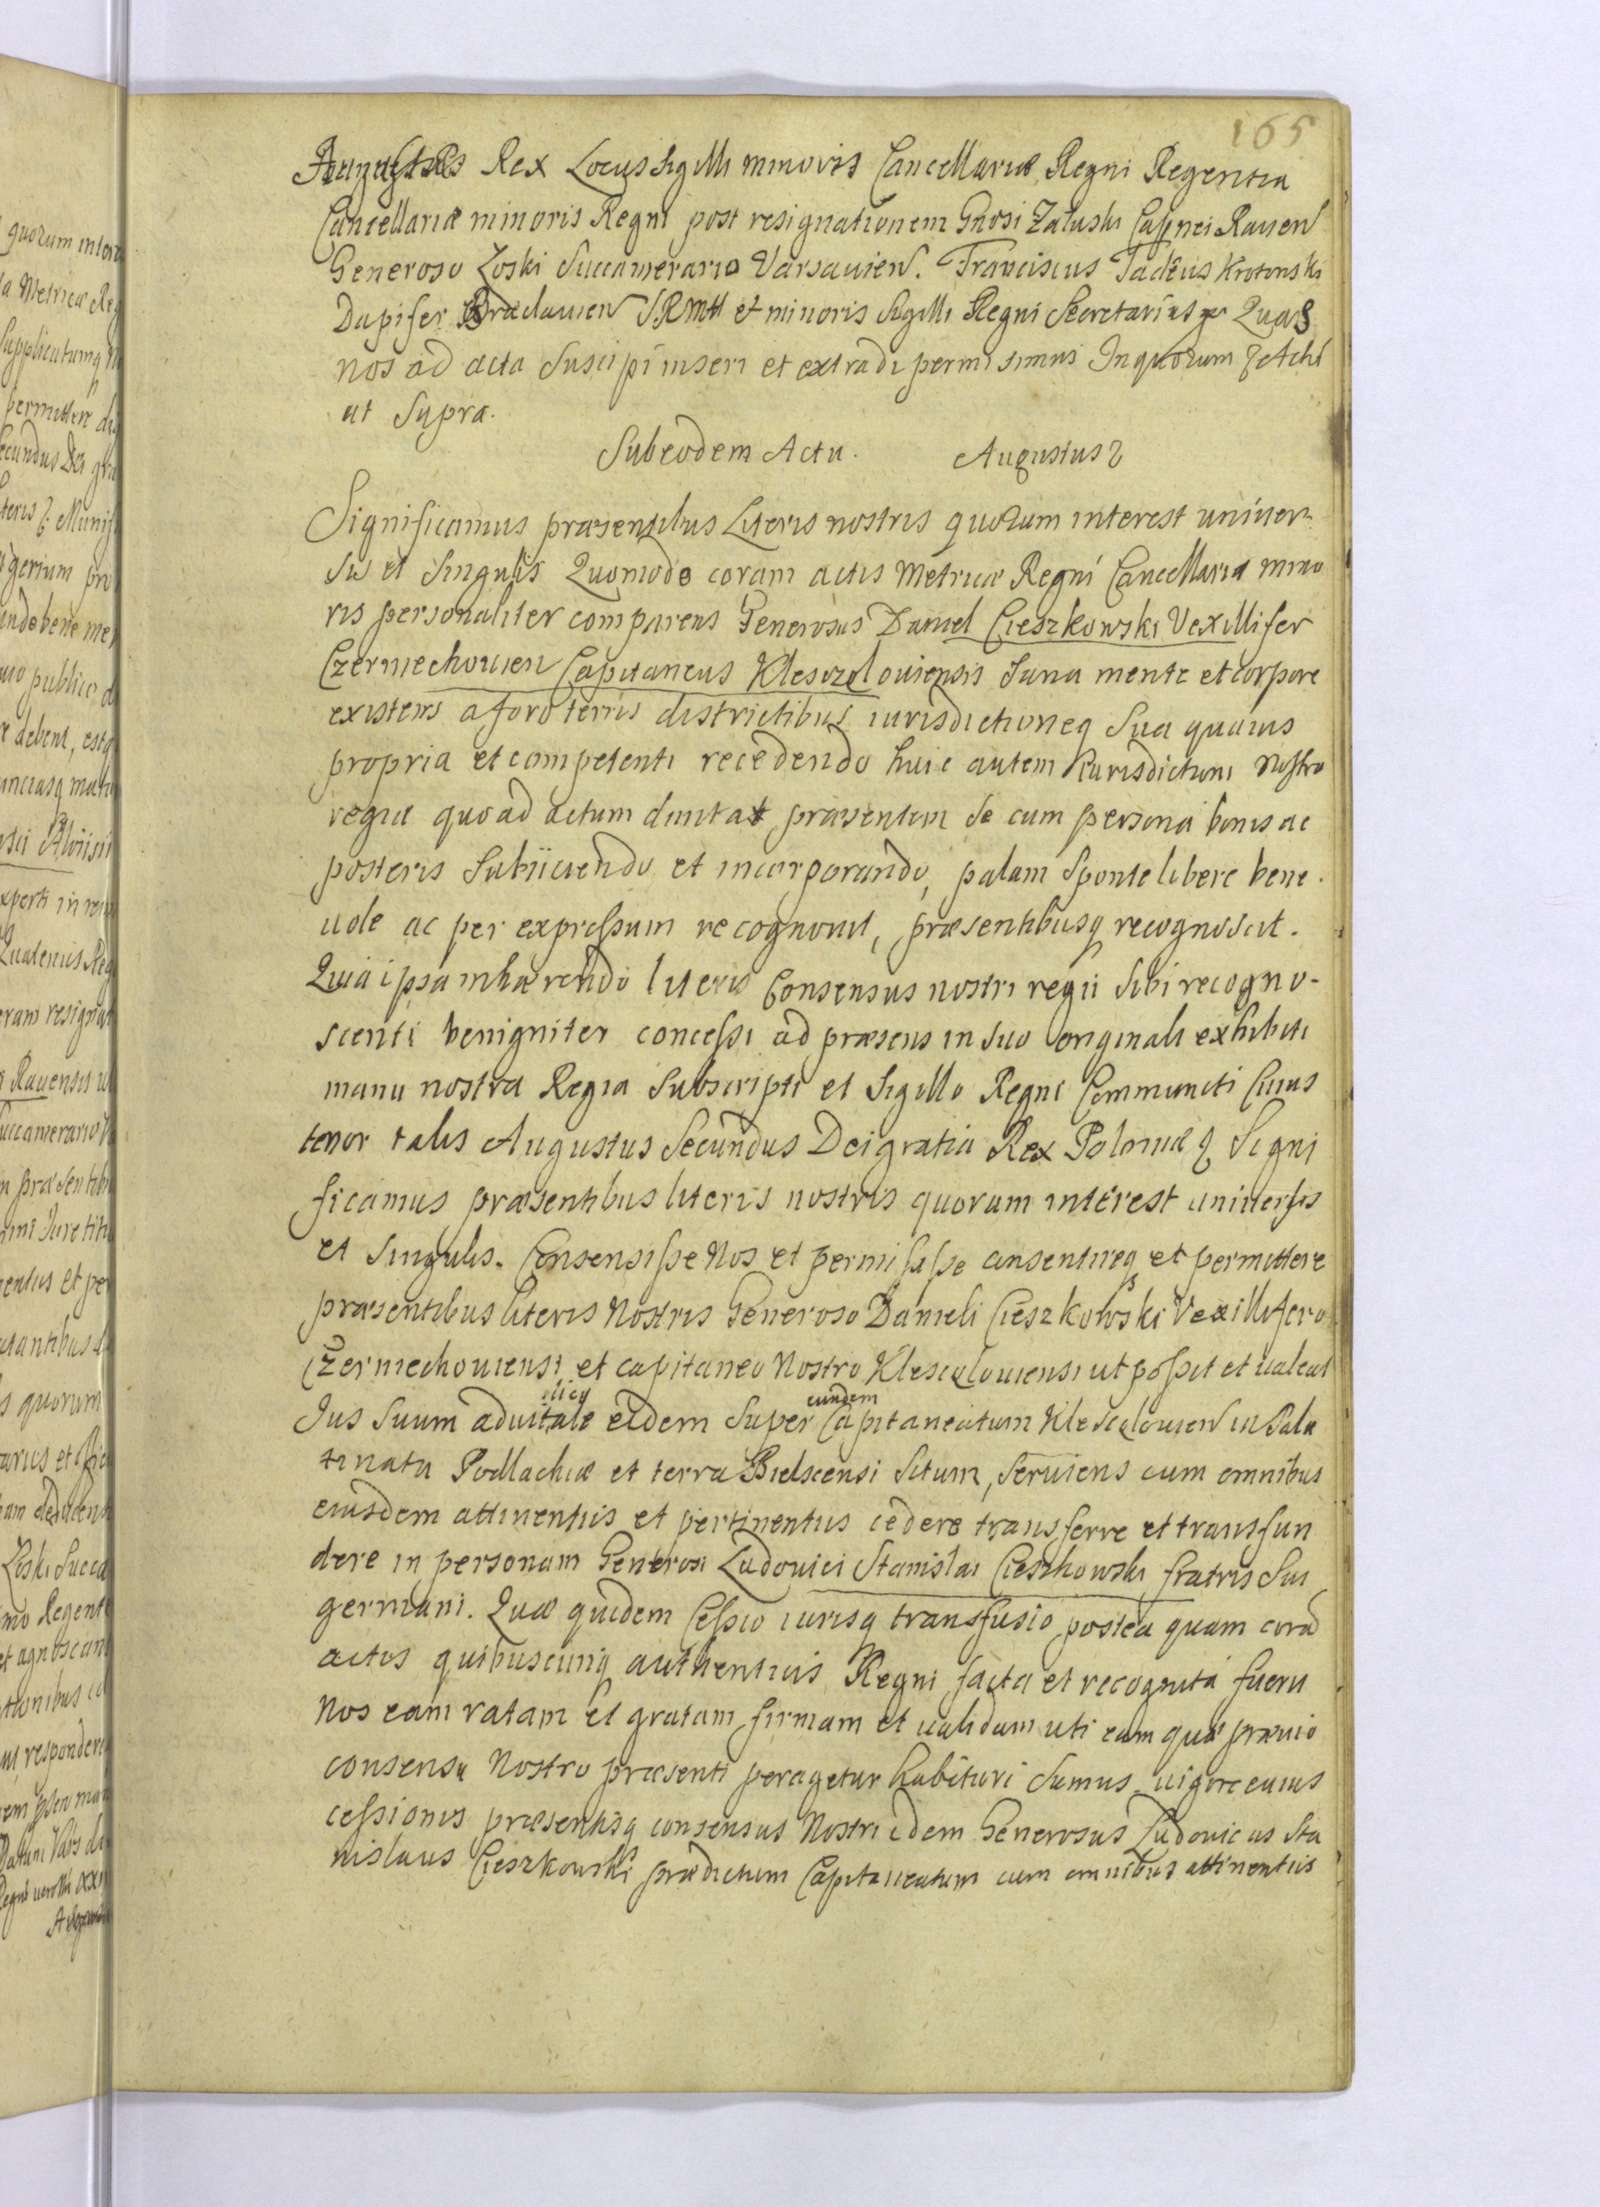 165
Augustus Rex Locus Sigilli minoris Cancellariæ Regni Regentia
Cancellariæ minoris Regni post resignationem Gnosi Załuski Caſtnei Raven
Generoso Zoski Succamerario Varsavien. Franciscus Tadeus Krotoński
Dapifer Bracłavien S.R.Mtt et minoris Sigilli Regni Secretarius Quas
nos ad acta Suscipi inseri et extradi permisimus In quorum Acti
ut Supra.
Sub eodem Actu. Augustus
Significamus præsentibus Literis nostris quorum interest univer-
sis et Singulis Quomodo coram actis Metricæ Regni Cancellaria mino
ris personaliter comparens Generosus Daniel Cieszkowski Vexillifer
Czerniechovien Capitaneus Kleszczeloviensis Sana mente et corpore
existens a foro terris districtibus iurisdictioneq Sua quavis
propria et competenti recedendo huic autem Iurisdictioni nostra
regiæ quo ad actum duntat præsentem Se cum persona bonis ac
posteris Subiiciendo et incorporando, palam Sponte libere bene
vole ac per expreſsum recognovit, præsentibusq recognoscit.
Quia ipsa inhærendo literis Consensus nostri regii Sibi recogno-
scenti benigniter conceſsi ad præsens in Suo originali exhibiti
manu nostra Regia Subscripti et Sigillo Regni Communiti Cuius
tenor talis Augustus Secundus Dei gratia Rex Poloniæ Signi
ficamus præsentibus literis nostris quorum interest universis
et Singulis. Consensiſse Nos et permiſiſse consentireq et permittere
præsentibus literis Nostris Generoso Danieli Cieszkowski Vexillifero
Czerniechoviensi et capitaneo Nostro Klesceloviensi ut poſsit et valeat
Ius Suum advitale eidem Super eundem Capitaneatum Klescelovien in Pala
tinatu Podlachiæ et terra Bielscensi Situm, Serviens cum omnibus
eiusdem attinentiis et pertinentiis cedere transferre et transfun
dere in personam Generosi Ludovici Stanislai Cieszkowski fratris Sui
germani. Quæ quidem Ceſsio iurisq transfusio postea quam corā
actis quibuscunq authenticis Regni facta et recognita fuerit
Nos eam ratam et gratam firmam et validam uti eam quæ prævio
consensu Nostro præsenti peragetur habituri Sumus vigore cuius
ceſsionis præsentisq consensus Nostri idem Generosus Ludovicus Sta
nislaus Cieszkowski prædictum Capitaneatum cum omnibus attinentiis